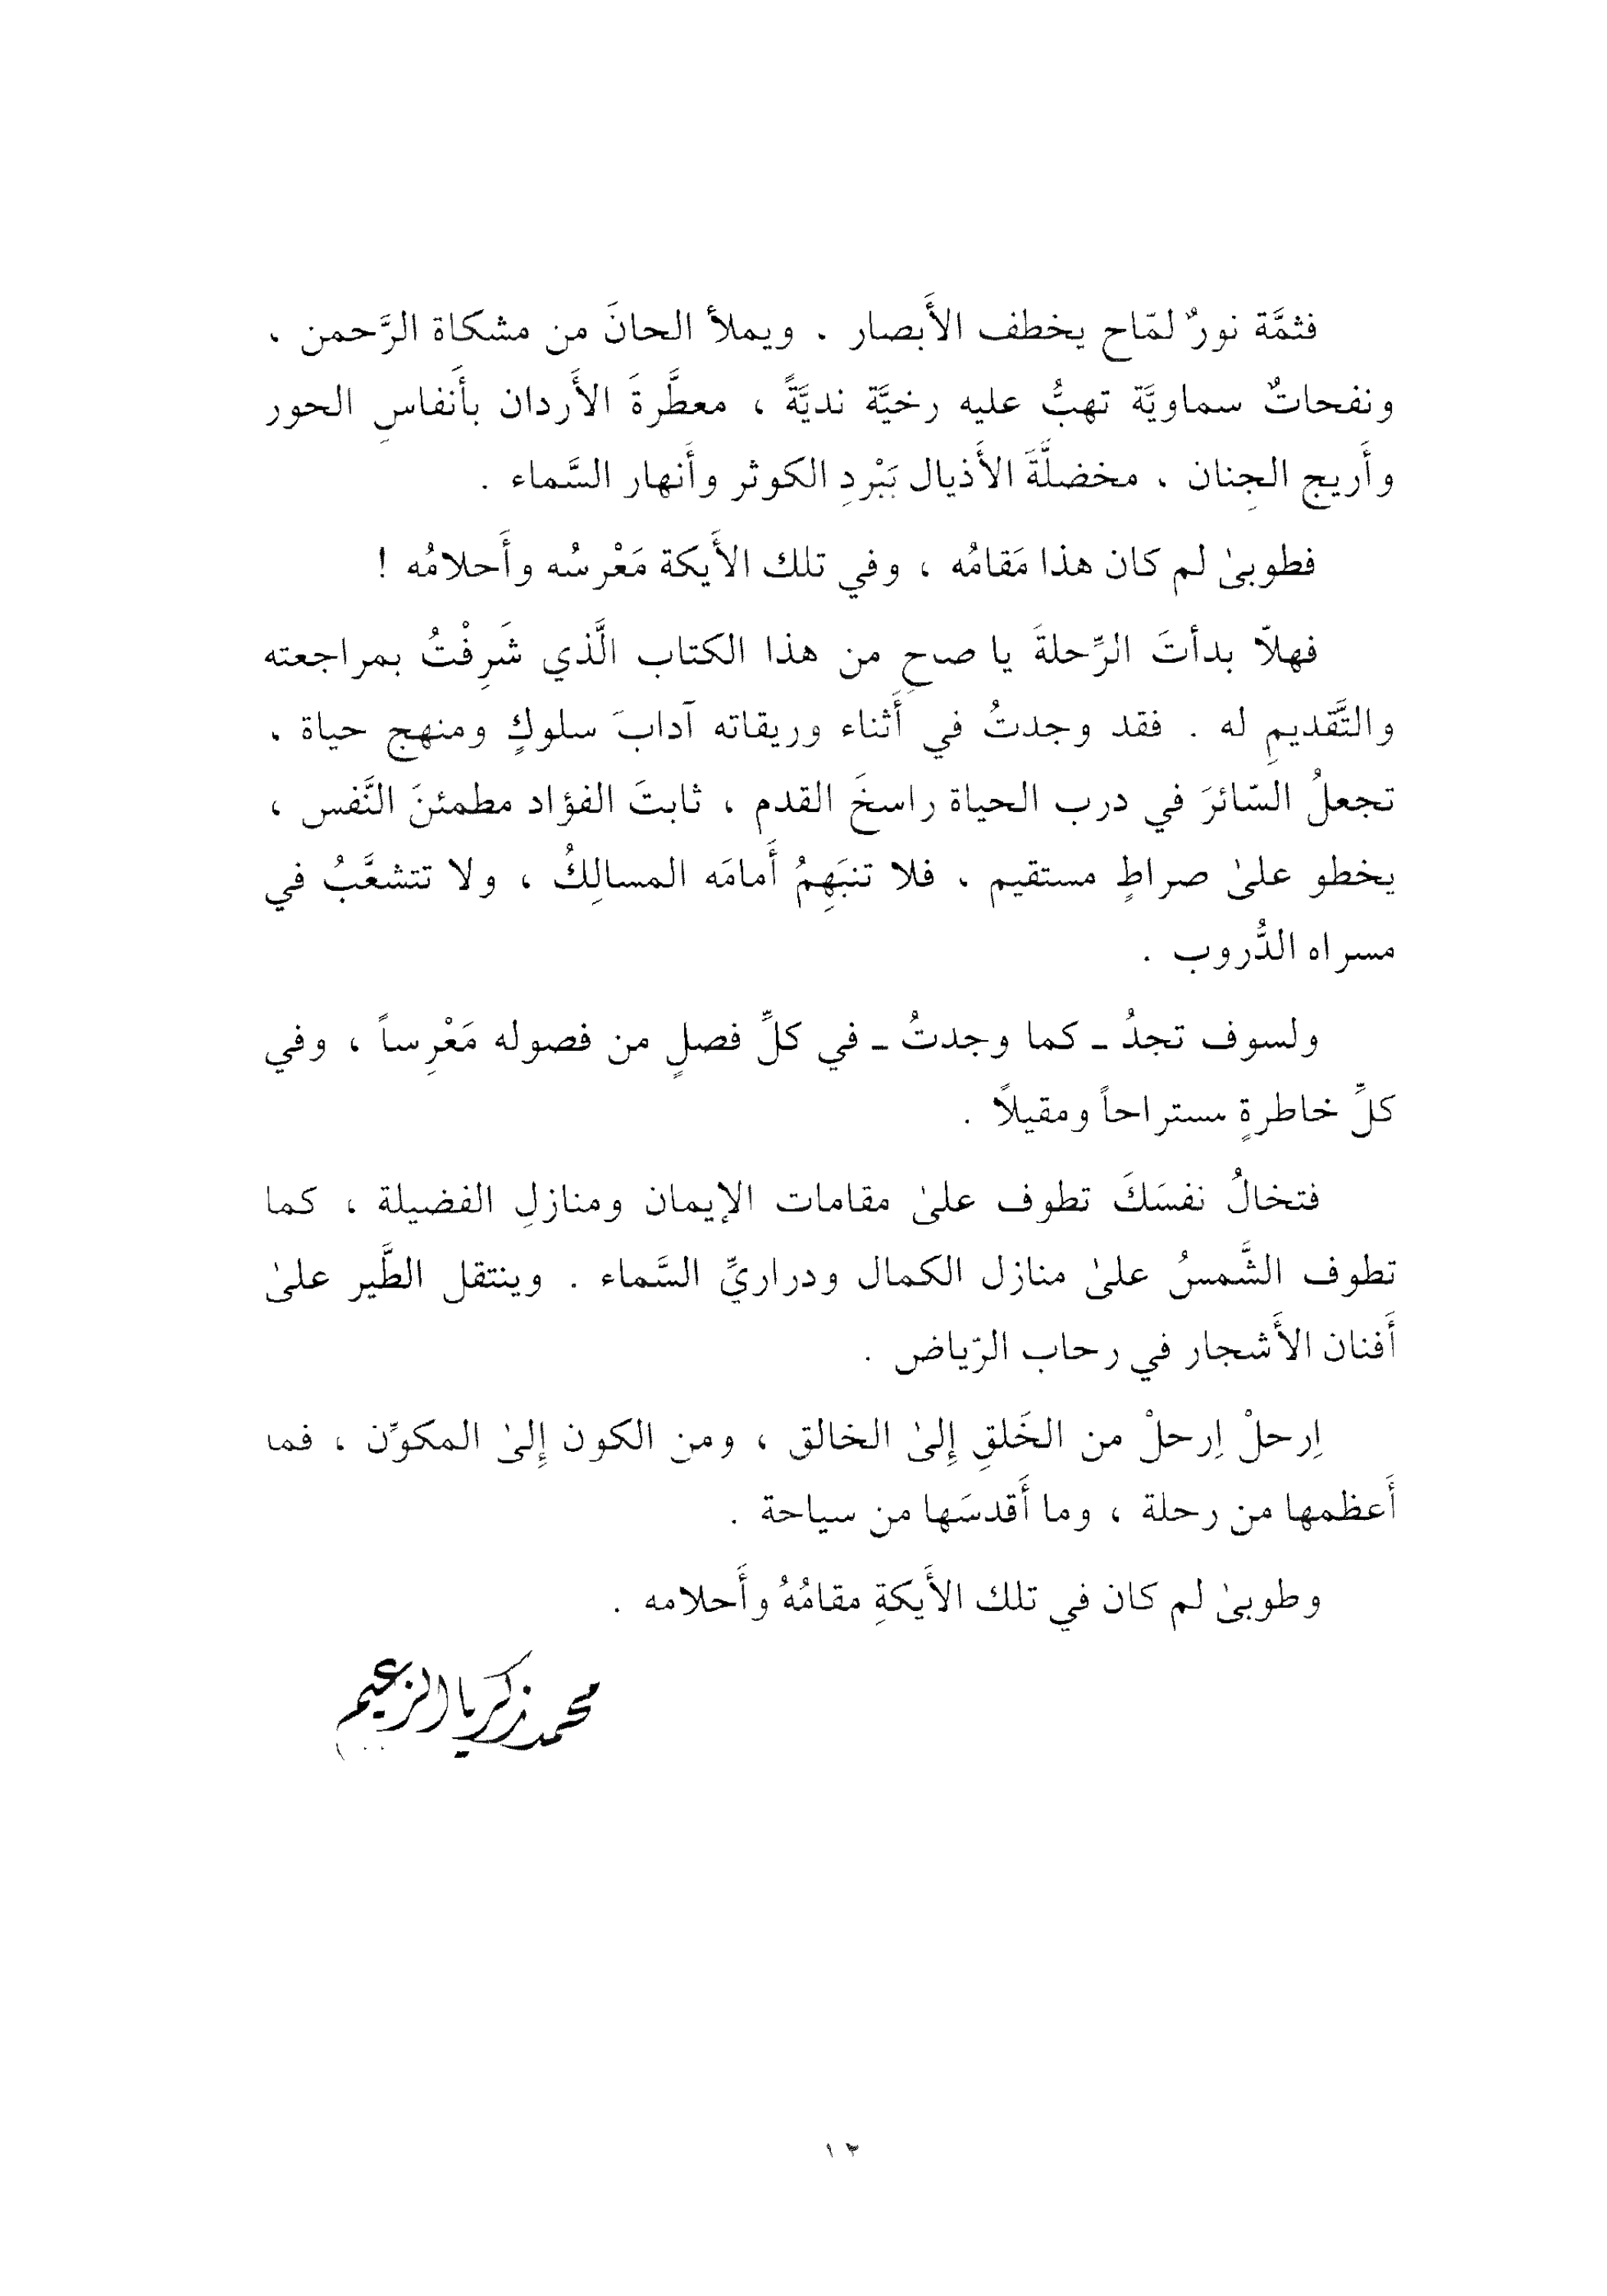 فثمَّة نورٌ لمّاح يخطف الأَبصار . ويملأ الحانَ من مشكاة الرَّحمن ،
ونفحاتٌ سماويَّة تهبُّ عليه رخيَّة نديَّةً ، معطَّرةَ الأَردان بأَنفاسِ الحور
وأَريج الجِنان ، مخضلَّةَ الأَذيال بَبْردِ الكوثر وأَنهار السَّماء .
فطوبىٰ لم كان هذا مَقامُه ، وفي تلك الأَيكة مَعْرسُه وأَحلامُه !
فهلاّ بدأتَ الرِّحلةَ يا صاحِ من هذا الكتاب الَّذي شَرِفْتُ بمراجعته
والتَّقديمِ له . فقد وجدتُ في أَثناء وريقاته آدابَ سلوكٍ ومنهج حياة ،
تجعلُ السّائرَ في درب الحياة راسخَ القدم ، ثابتَ الفؤاد مطمئنَ النَّفس ،
يخطو علىٰ صراطٍ مستقيم ، فلا تنبَهِمُ أَمامَه المسالِكُ ، ولا تتشعَّبُ في
مسراه الدُّروب .
ولسوف تجدُ ـ كما وجدتُ ـ في كلِّ فصلٍ من فصوله مَعْرِساً ، وفي
كلِّ خاطرةٍ مستراحاً ومقيلاً .
فتخالُ نفسَكَ تطوف علىٰ مقامات الإيمان ومنازلِ الفضيلة ، كما
تطوف الشَّمسُ علىٰ منازل الكمال ودراريِّ السَّماء . وينتقل الطَّير علىٰ
أَفنان الأَشجار في رحاب الرّياض .
اِرحلْ اِرحلْ من الخَلقِ إِلىٰ الخالق ، ومن الكون إِلىٰ المكوِّن ، فما
أَعظمها من رحلة ، وما أَقدسَها من سياحة .
وطوبىٰ لم كان في تلك الأَيكةِ مقامُهُ وأَحلامه .
محمد زكريا الزعيم
١٣